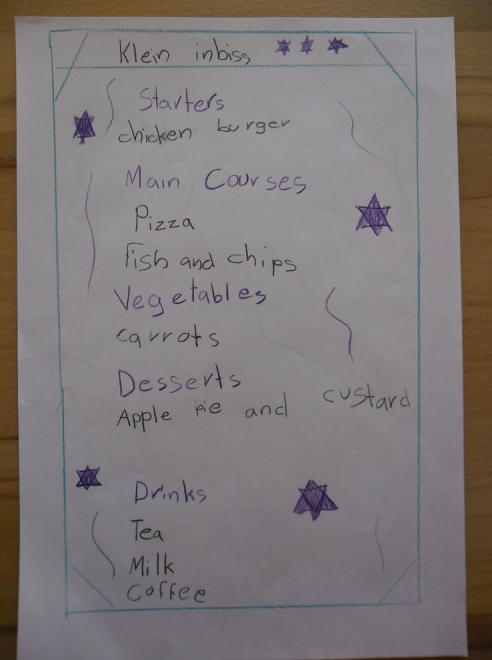 Klein inbiss
Starters
chicken burger
Main Courses
Pizza
fish and chips
Vegetables
carrots
Desserts
Apple pie and custard
Drinks
Tea
Milk
Coffee